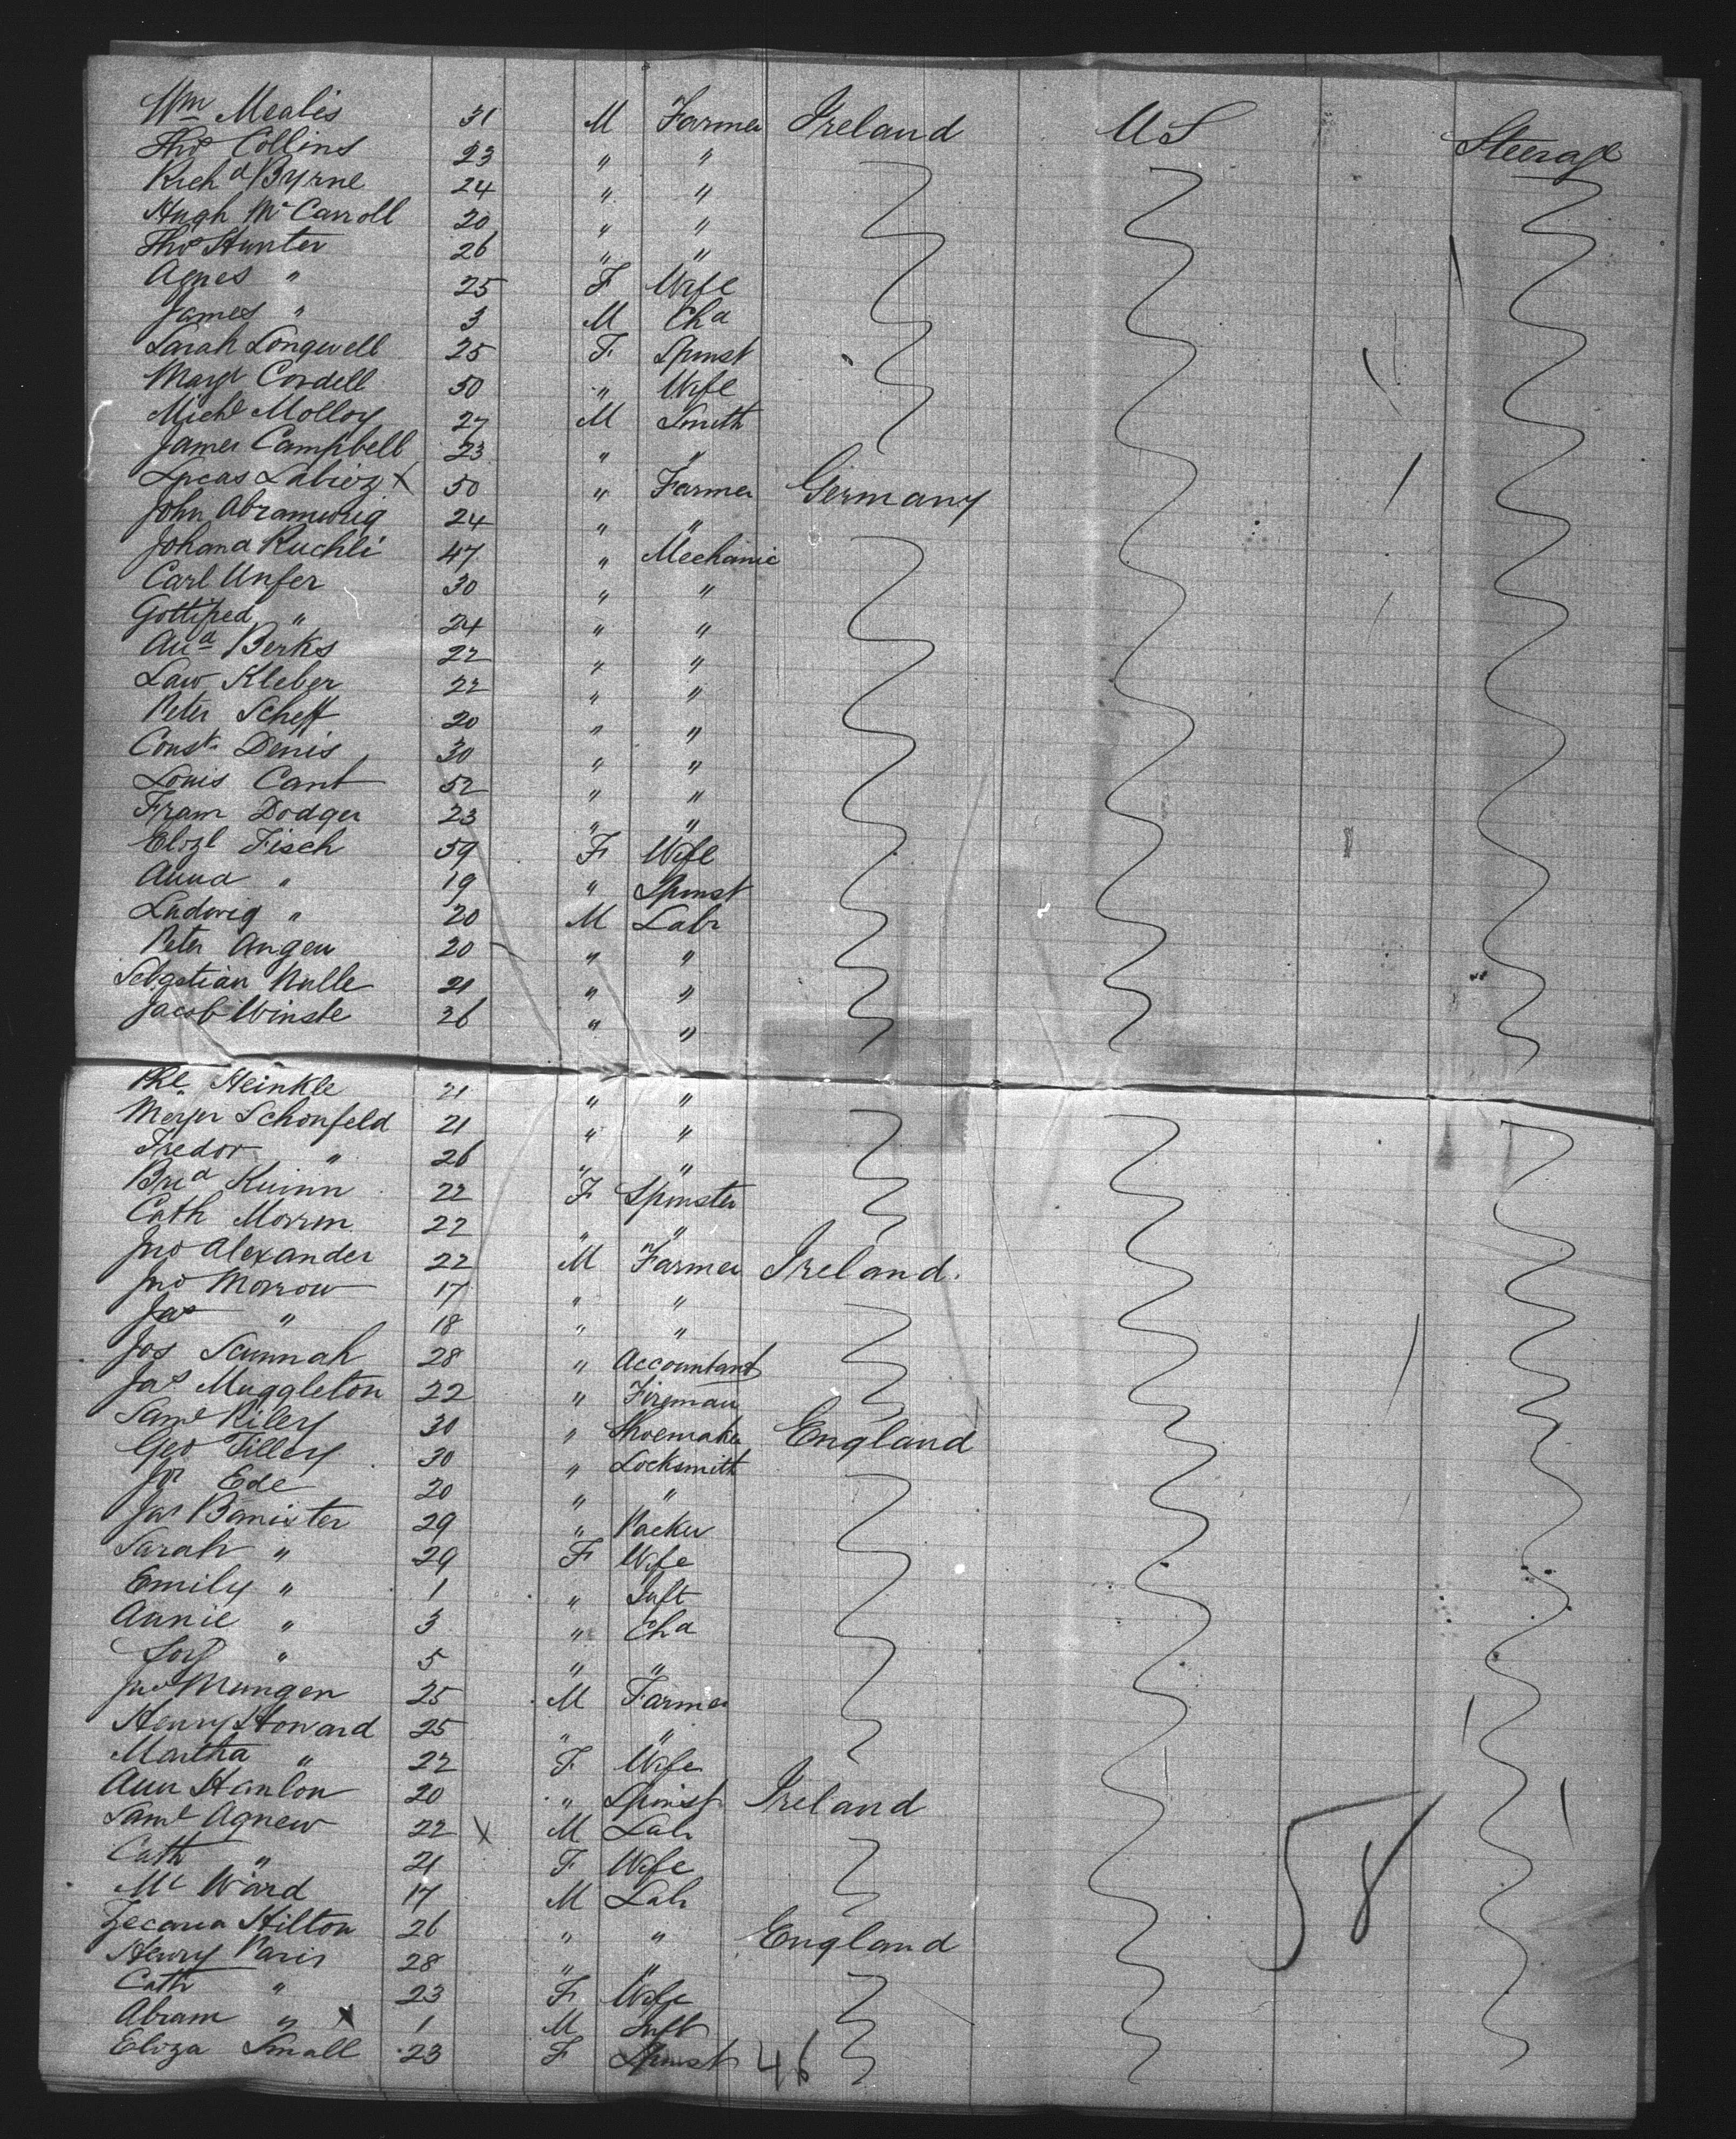 Wm Mealis 31 M Farmer Ireland US Steerage
Thos Collins 23 " "
Richd Byrne 24 " "
Hugh McCarroll 20 " "
Thos Hunter 26 " "
Agnes " 25 F Wife
James " 3 M Chd
Sarah Longwell 25 F Spinst
Margt Cordell 50 " Wife
Michl Molloy 27 M Smith
James Campbell 23 " "
Lucas Labioz X 50 " Farmer Germany
John Abramwig 24 " "
Johana Kuchli 47 " Mechanic
Carl Unfer 30 " "
Gottfried " 24 " "
Aua Berks 22 " "
Law Kleber 22 " "
Peter Scheff 20 " "
Const. Denis 30 " "
Louis Cant 52 " "
Fram Dodger 23 " "
Elizt Fisch 59 F Wife
Anna " 19 " Spinst
Ludwig " 20 M Labr
Peter Angen 20 " "
Sebastian Nulle 21 " "
Jacob Winste 26 " "
Phl Heinkle 21 " "
Meyer Schonfeld 21 " "
Fredor " 26 " "
Brid Kuinn 22 F Spinster
Cath Morrin 22 " "
Jno Alexander 22 M Farmer Ireland.
Jno Morrow 17 " "
Jas " 18 " "
Jos Scunnah 28 " Accountant
Jas Muggleton 22 " Fireman
Saml Riley 30 " Shoemaker England
Geo Tilley 30 " Locksmith
Jos Ede 20 " "
Jas Banister 29 " Packer
Sarah " 29 F Wife
Emily " 1 " Inft
Annie " 3 " Chd
" 5 " "
Jno Mungen 25 M Farmer
Henry Howard 25 " "
Martha " 22 F Wife
Ann Hanlon 20 " Spinst Ireland
Saml Agnew 22 X M Labr
Cath " 21 F Wife
Mc Ward 17 M Labr
Zecaria Hilton 26 " " England
Henry Paris 28 " "
Cath " 23 F Wife
Abram " X 1 M Inft
Eliza Small 23 F Spinst 46
58